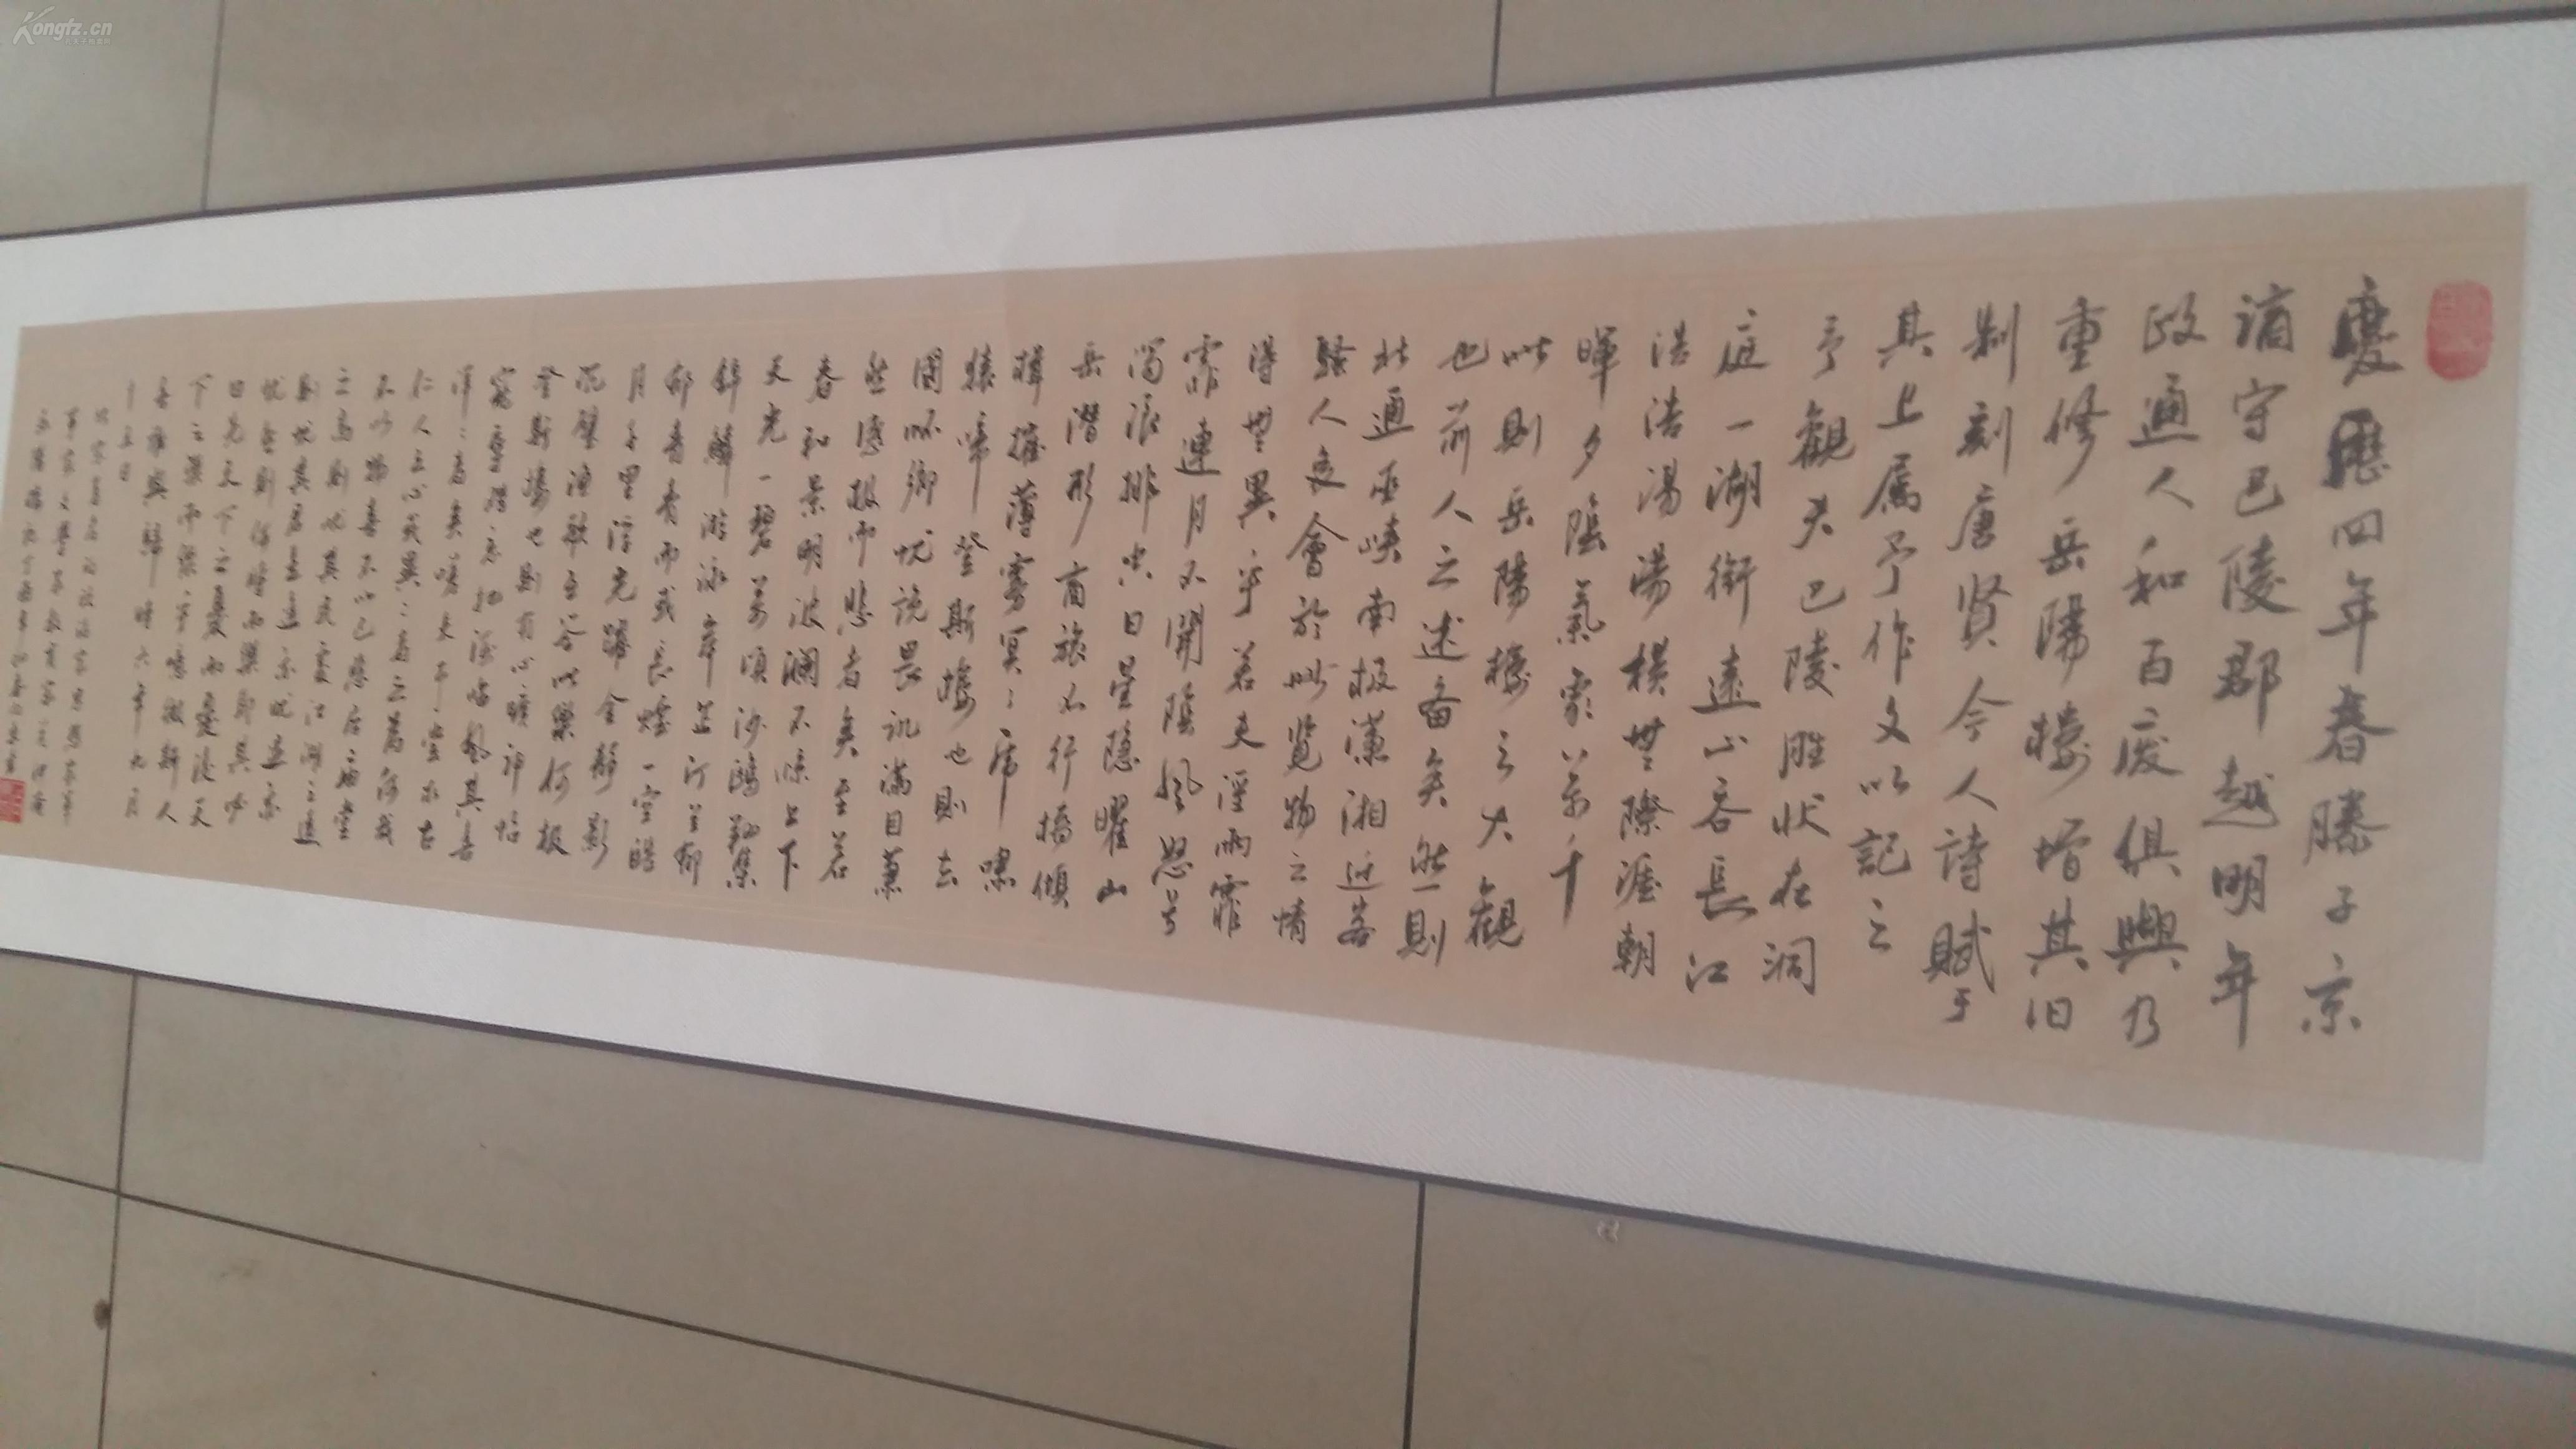 慶曆四年春滕子京
謫守巴陵郡越明年
政通人和百废俱興乃
重修岳陽樓增其旧
制刻唐賢今人詩賦于
其上属予作文以記之
予觀夫巴陵胜状在洞
庭一湖銜遠山吞長江
浩浩湯湯橫無際涯朝
暉夕陰氣象萬千
此則岳陽樓之大觀
也前人之述备矣然則
北通巫峽南极瀟湘迁客
騷人多會於此览物之情
得無異乎若夫淫雨霏
霏連月不開陰風怒号
濁浪排空日星隐曜山
岳潜形商旅不行檣傾
楫摧薄雾冥〻虎嘯
猿啼登斯樓也則有去
國怀鄉忧讒畏讥滿目蕭
然感极而悲者矣至若
春和景明波瀾不惊上下
天光一碧萬頃沙鷗翔集
錦鱗游泳岸芷汀兰郁
郁青青而或長煙一空皓
月千里浮光躍金靜影
沉璧漁歌互答此樂何极
登斯樓也則有心曠神怡
寵辱偕忘把酒临風其喜
洋〻者矣嗟夫予嘗求古
仁人之心或異二者之為何哉
不以物喜不以己悲居廟堂
之高則忧其民處江湖之遠
則忧其君是進亦忧退亦
忧然則何時而樂耶其必
曰先天下之憂而憂後天
下之樂而樂乎噫微斯人
吾誰與歸時六年九月
十五日
Kongfz.cn